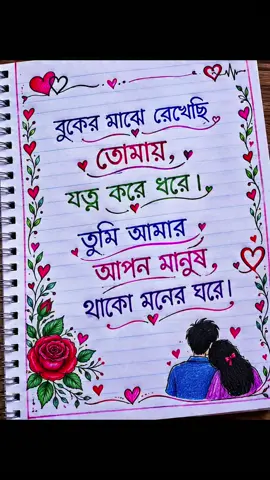 বুকের মাঝে রেখেছি
তোমায়,
যত্ন করে ধরে।
তুমি আমার
আপন মানুষ
থাকো মনের ঘরে।